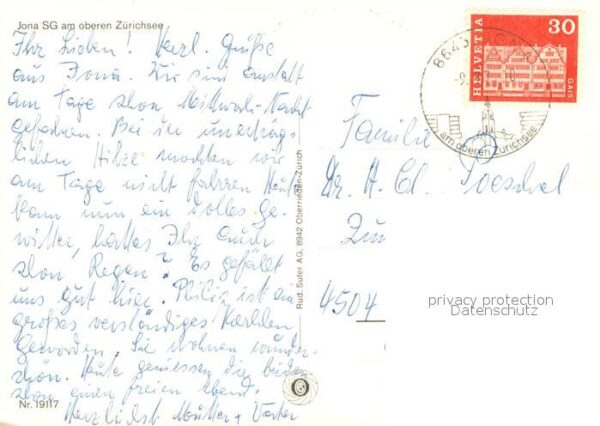 Jona SG am oberen Zürichsee
Ihr Lieben! Herzl. Grüße
aus Jona. Wir sind anstatt
am Tage schon Mittwoch-Nacht
gefahren. Bei der unerträg-
lichen Hitze mochten wir
am Tage nicht fahren. Heute
kam nun ein tolles Ge-
witter, hattet Ihr auch
schon Regen? Es gefällt
uns gut hier. Philip ist ein
großes verständiges Kerlchen
geworden. Sie wohnen wunder-
schön. Heute geniessen die beiden
schon einen freien Abend.
Herzlichst Mutter + Vater
Nr. 19117
Rud. Suter AG, 8942 Oberrieden-Zürich
HELVETIA
30
GAIS
8645 JONA
am oberen Zürichsee
Familie
Dr. H. Cl.
4504
privacy protection
Datenschutz